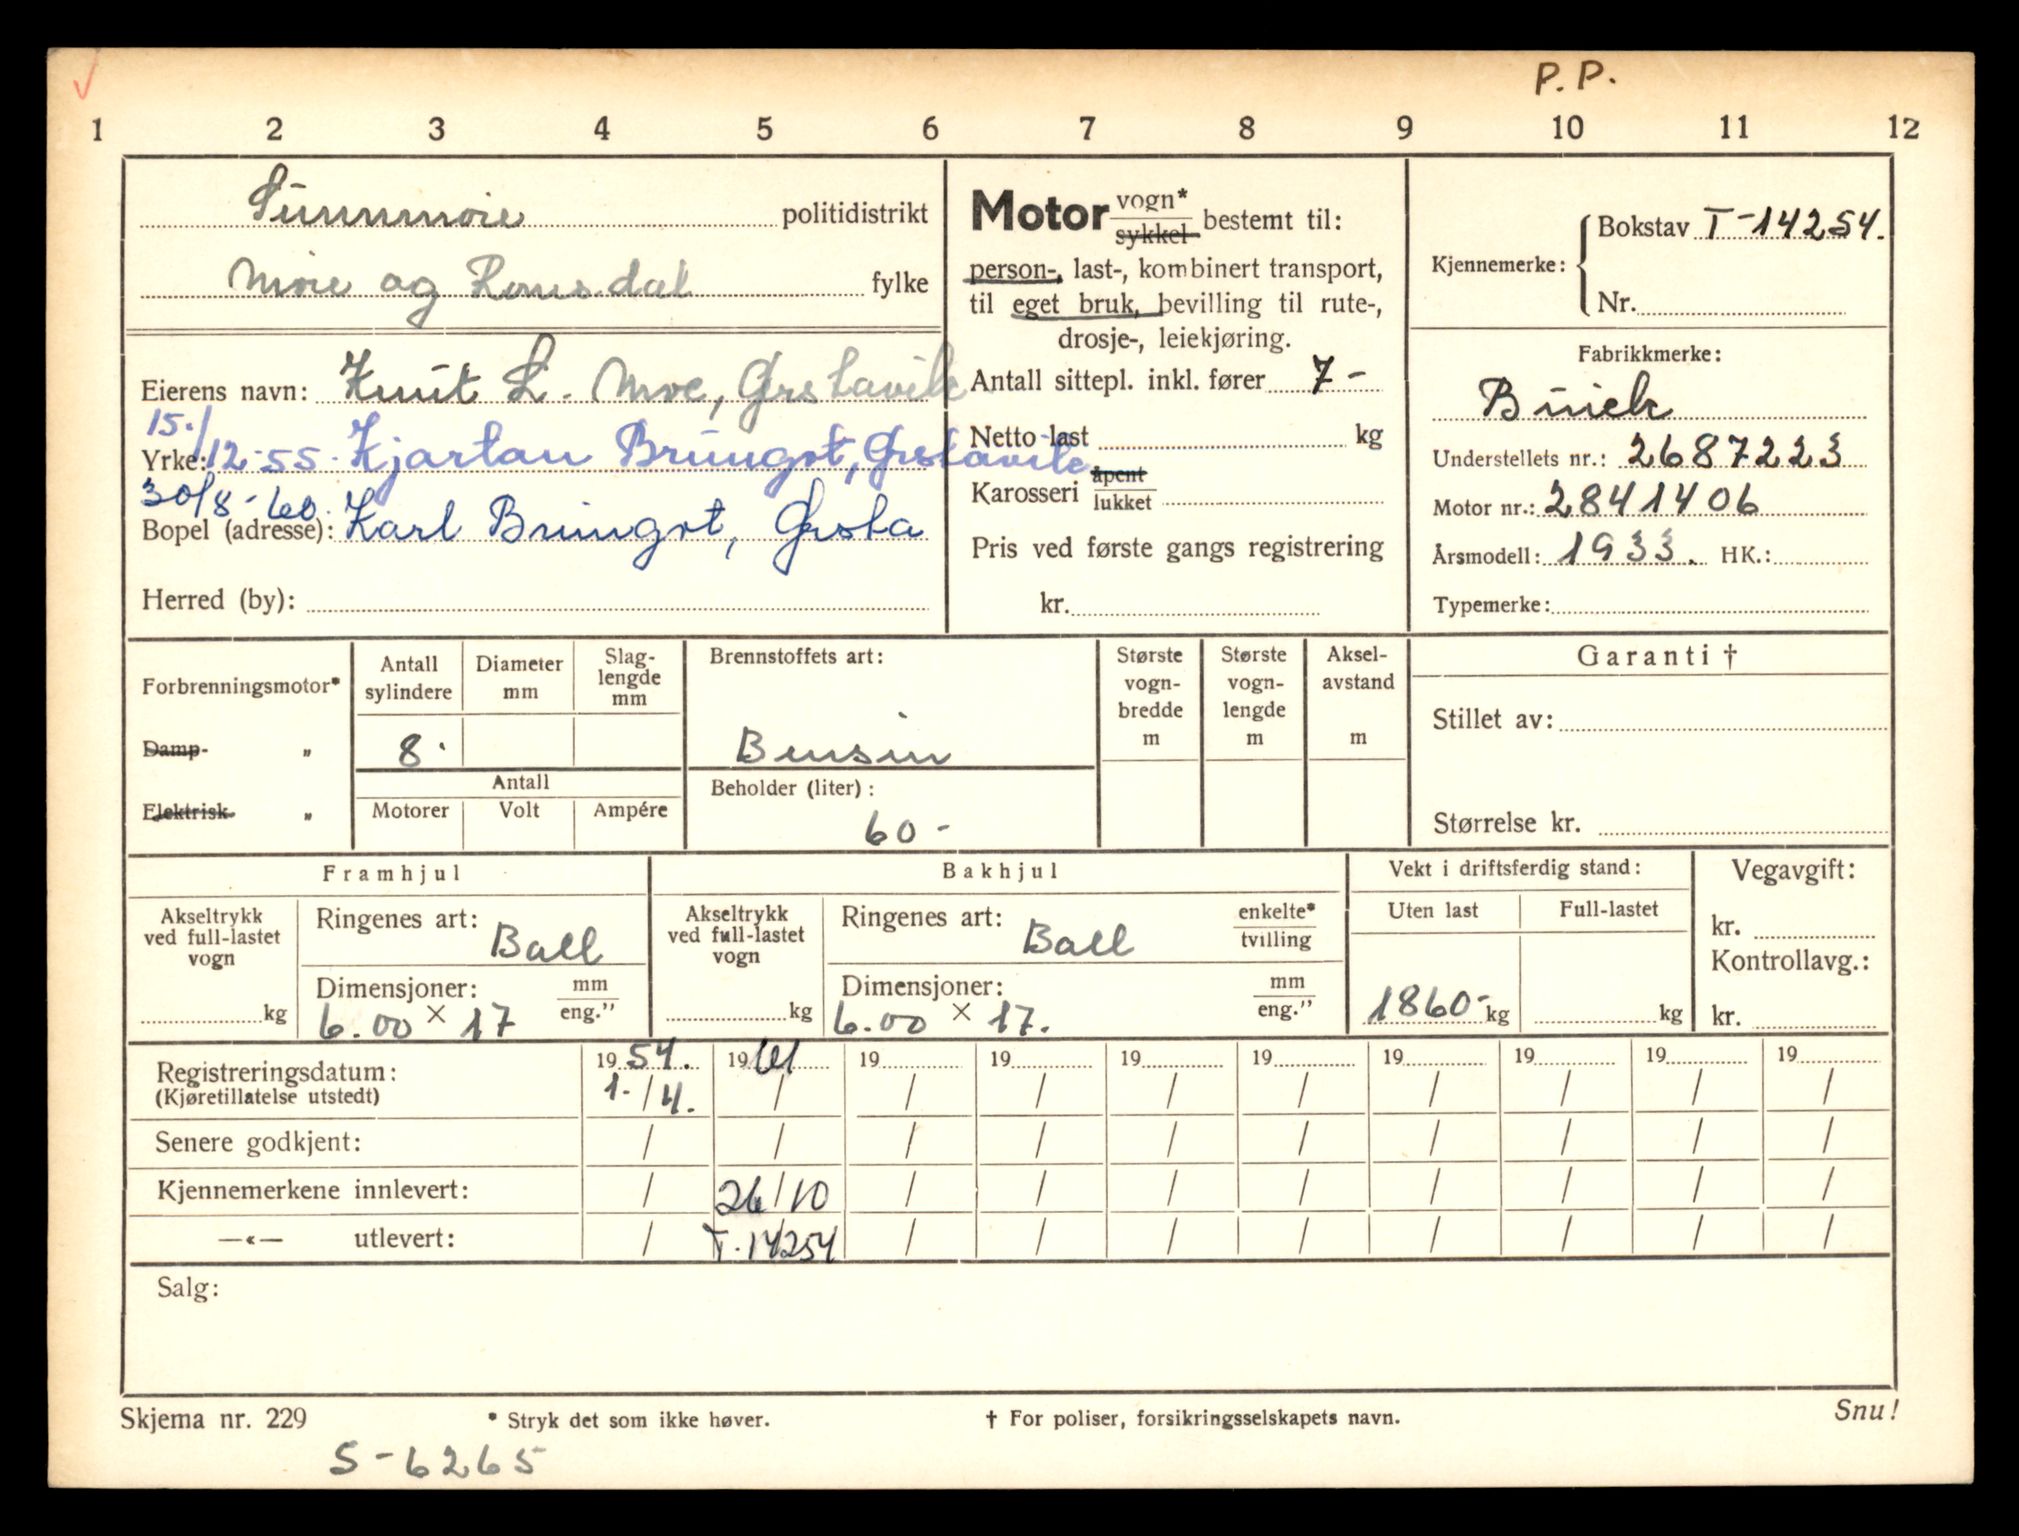 P. P.
1 2 3 4 5 6 7 8 9 10 11 12
Sunnmøre politidistrikt
Møre og Romsdal fylke
Eierens navn: Knut L. Moe, Ørstavik
15./12-55. Kjartan Brungot, Ørstavik
Yrke:
30/8-60. Karl Brungot, Ørsta
Bopel (adresse):
Herred (by):
Motor vogn* sykkel bestemt til:
person-, last-, kombinert transport,
til eget bruk, bevilling til rute-,
drosje-, leiekjøring.
Antall sittepl. inkl. fører 7-
Netto last kg
Karosseri åpent lukket
Pris ved første gangs registrering
kr.
Kjennemerke: Bokstav T-14254.
Nr.
Fabrikkmerke:
Buick
Understellets nr.: 2687223
Motor nr.: 2841406
Årsmodell: 1933. HK.:
Typemerke:
Forbrenningsmotor*
Damp- „
Elektrisk- „
Antall sylindere
Diameter mm
Slag-lengde mm
8.
Antall
Motorer Volt Ampére
Brennstoffets art:
Bensin
Beholder (liter):
60-
Største vogn-bredde m
Største vogn-lengde m
Aksel-avstand m
Garanti †
Stillet av:
Størrelse kr.
Framhjul
Akseltrykk ved full-lastet vogn
kg
Ringenes art: Ball
Dimensjoner: mm eng.”
6.00 × 17
Bakhjul
Akseltrykk ved full-lastet vogn
kg
Ringenes art: Ball enkelte* tvilling
Dimensjoner: mm eng.”
6.00 × 17.
Vekt i driftsferdig stand:
Uten last Full-lastet
1860- kg kg
Vegavgift:
kr.
Kontrollavg.:
kr.
Registreringsdatum: 1954. 1961 19 19 19 19 19 19 19 19
(Kjøretillatelse utstedt) 1./4. / / / / / / / / /
Senere godkjent: / / / / / / / / / /
Kjennemerkene innlevert: / 26/10 / / / / / / / /
—«— utlevert: / T-14254 / / / / / / / /
Salg:
Skjema nr. 229 * Stryk det som ikke høver. † For poliser, forsikringsselskapets navn. Snu!
S-6265